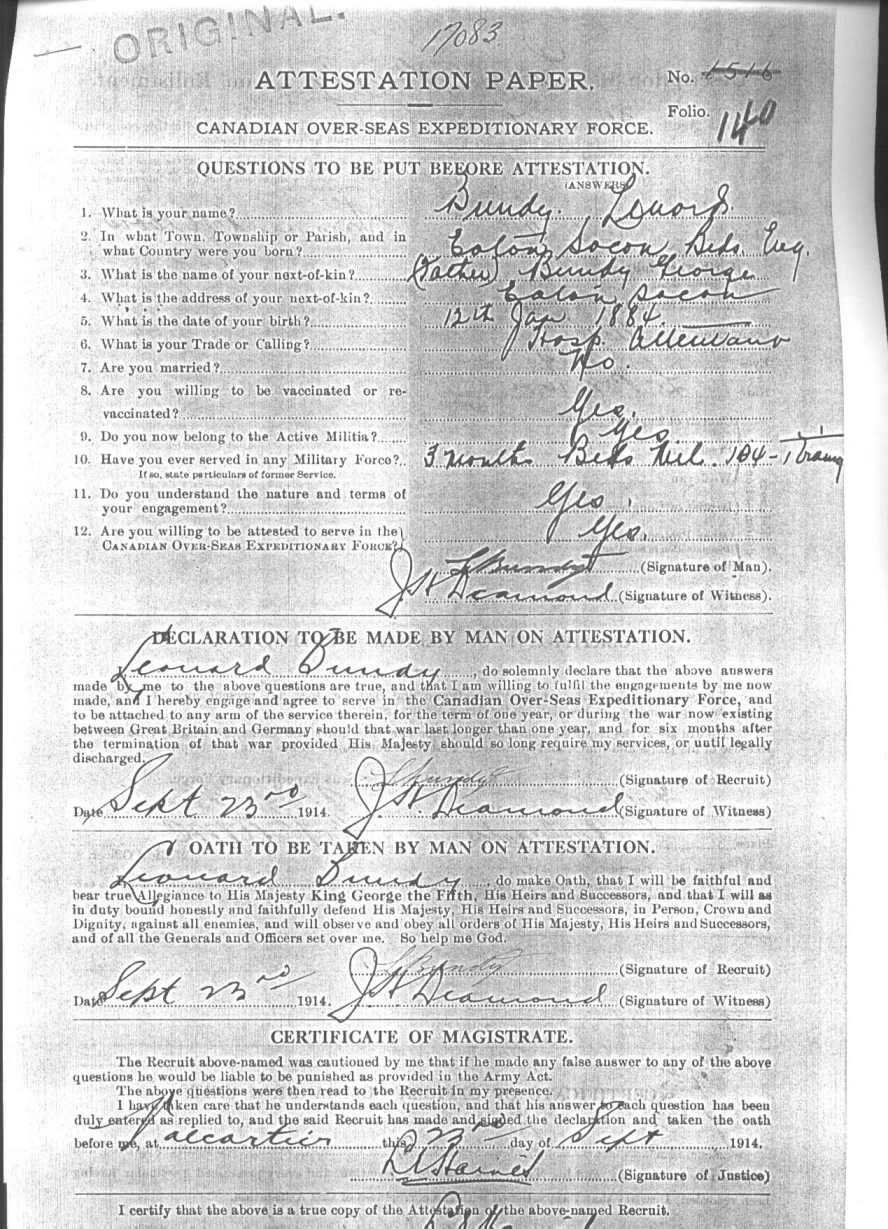 ORIGINAL.
17083
ATTESTATION PAPER.
No. 1516
Folio. 140
CANADIAN OVER-SEAS EXPEDITIONARY FORCE.
QUESTIONS TO BE PUT BEFORE ATTESTATION.
(ANSWERS)
1. What is your name? Bundy.
2. In what Town, Township or Parish, and in
what Country were you born? Eaton Socon Beds. Eng.
3. What is the name of your next-of-kin? (Father) Bundy George
4. What is the address of your next-of-kin? Eaton Socon
5. What is the date of your birth? 12th Jan 1884.
6. What is your Trade or Calling? Hosp. Attendant
7. Are you married? No.
8. Are you willing to be vaccinated or re-
vaccinated? Yes.
9. Do you now belong to the Active Militia? Yes
10. Have you ever served in any Military Force? 3 months Beds Mil.
If so, state particulars of former Service.
11. Do you understand the nature and terms of
your engagement? Yes.
12. Are you willing to be attested to serve in the
CANADIAN OVER-SEAS EXPEDITIONARY FORCE? Yes.
L Bundy (Signature of Man).
J H Diamond (Signature of Witness).
DECLARATION TO BE MADE BY MAN ON ATTESTATION.
Leonard Bundy, do solemnly declare that the above answers
made by me to the above questions are true, and that I am willing to fulfil the engagements by me now
made, and I hereby engage and agree to serve in the Canadian Over-Seas Expeditionary Force, and
to be attached to any arm of the service therein, for the term of one year, or during the war now existing
between Great Britain and Germany should that war last longer than one year, and for six months after
the termination of that war provided His Majesty should so long require my services, or until legally
discharged.
L Bundy (Signature of Recruit)
Date Sept 23rd 1914. J H Diamond (Signature of Witness)
OATH TO BE TAKEN BY MAN ON ATTESTATION.
Leonard Bundy, do make Oath, that I will be faithful and
bear true Allegiance to His Majesty King George the Fifth, His Heirs and Successors, and that I will as
in duty bound honestly and faithfully defend His Majesty, His Heirs and Successors, in Person, Crown and
Dignity, against all enemies, and will observe and obey all orders of His Majesty, His Heirs and Successors,
and of all the Generals and Officers set over me. So help me God.
L Bundy (Signature of Recruit)
Date Sept 23rd 1914. J H Diamond (Signature of Witness)
CERTIFICATE OF MAGISTRATE.
The Recruit above-named was cautioned by me that if he made any false answer to any of the above
questions he would be liable to be punished as provided in the Army Act.
The above questions were then read to the Recruit in my presence.
I have taken care that he understands each question, and that his answer to each question has been
duly entered as replied to, and the said Recruit has made and signed the declaration and taken the oath
before me, at Valcartier this 23rd day of Sept 1914.
(Signature of Justice)
I certify that the above is a true copy of the Attestation of the above-named Recruit.